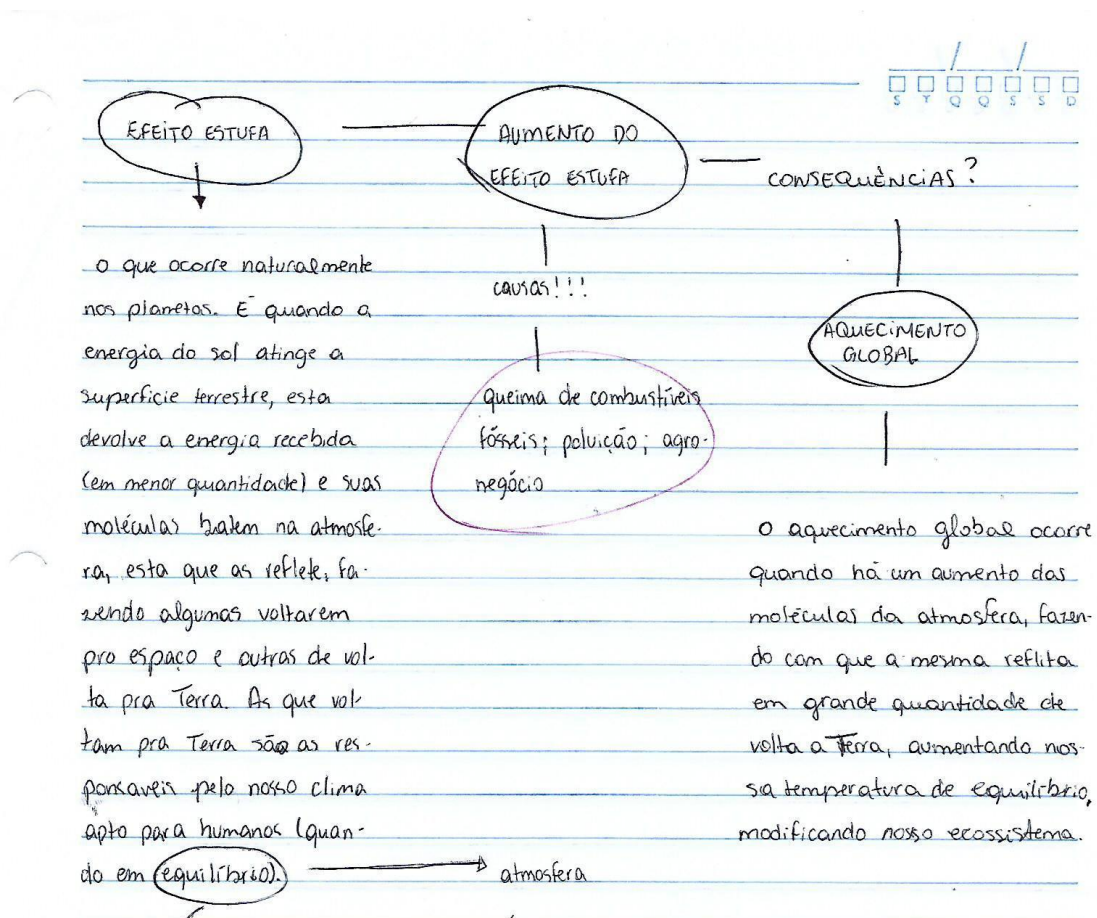 S T Q Q S S D
EFEITO ESTUFA
AUMENTO DO
EFEITO ESTUFA
CONSEQUÊNCIAS?
o que ocorre naturalmente
nos planetas. É quando a
energia do sol atinge a
superfície terrestre, esta
devolve a energia recebida
(em menor quantidade) e suas
moléculas batem na atmosfe-
ra, esta que as reflete, fa-
zendo algumas voltarem
pro espaço e outras de vol-
ta pra Terra. As que vol-
tam pra Terra são as res-
ponsaveis pelo nosso clima
apto para humanos (quan-
do em equilíbrio).
atmosfera
causas!!!
queima de combustíveis
fósseis; poluição; agro-
negócio
AQUECIMENTO
GLOBAL
o aquecimento global ocorre
quando há um aumento das
moléculas da atmosfera, fazen-
do com que a mesma reflita
em grande quantidade de
volta a Terra, aumentando nos-
sa temperatura de equilíbrio,
modificando nosso ecossistema.